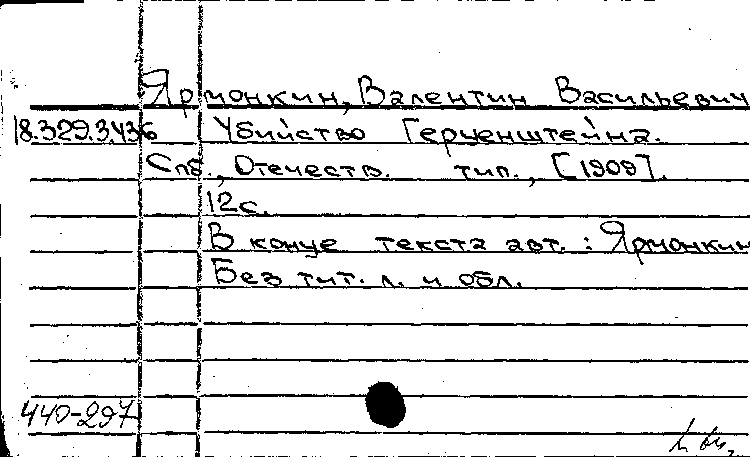 Ярмонкин, Валентин Васильевич
18.329.3.436 Убийство Герценштейна.
Спб., Отечеств. тип., [1909].
12с.
В конце текста авт.: Ярмонкин
Без тит. л. и обл.
440-297